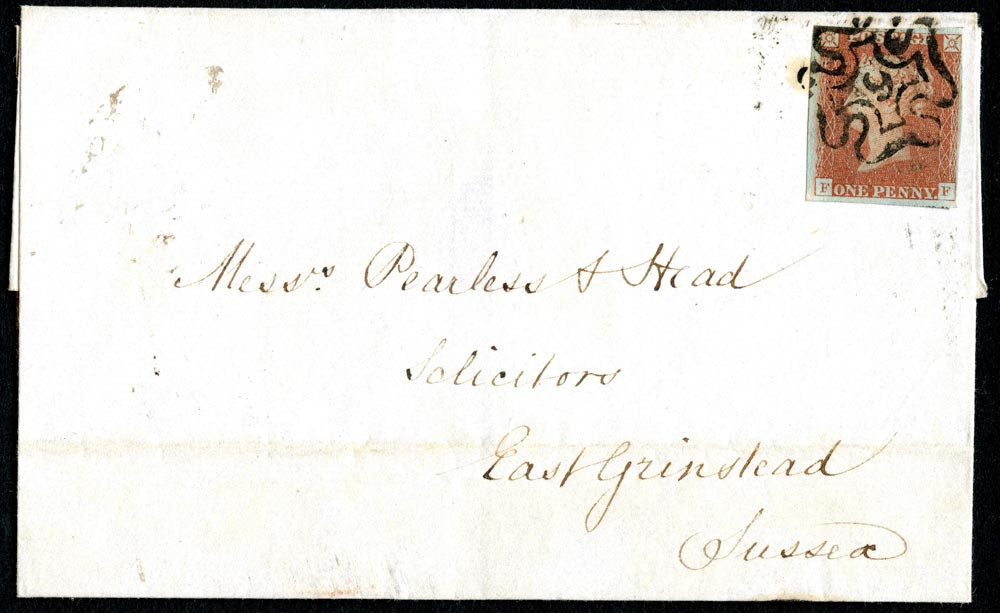 POSTAGE
9
F ONE PENNY. F
Messrs. Pearless & Head
Solicitors
East Grinstead
Sussex